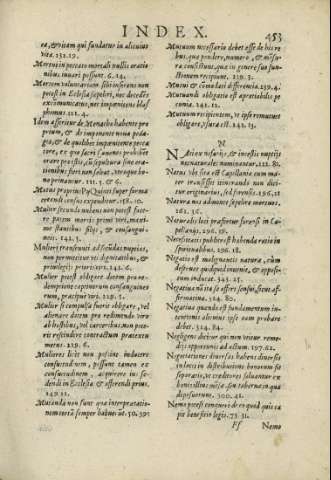 INDEX.
453
ea, & etiam qui fundatur in alicuius
vita. 132.19.
Mortui in peccato mortali nullis oratio
nibus iuuari possunt. 6.14.
Mortem voluntariam sibi inferens non
potest in Ecclesia sepeliri, nec decedēs
excōmunicatus, nec impœnitens blas
phemus. 111.4.
Idem asseritur de Monacho habente pro
prium, & de imponente noua peda
gia, & de quolibet impœnitente pecca
tore, ex quo sacri Canones prohibēt
orare pro istis, cū sepultura sine orati
onibus fieri non soleat, vtroque bo
no priuantur. 111.5. & 6.
Motus proprius Pij Quinti super forma
cēsendi census expenditur. 158.10.
Mulier secundò nubens non potest face
re pactum morti prioris viri, maxi-
mè stantibus filijs, & consangui-
neis. 142.3.
Mulieri transeunti ad secundas nuptias,
non permittitur vti dignitatibus, &
priuilegijs prioris viri. 142.6.
Mulier potest obligare dotem pro re-
demptione captiuorum consanguineo
rum, præcipuè viri. 229.3.
Mulier si compulsa fuerit obligare, vel
alienare dotem pro redimendo viro
ab hostibus, vel carceribus, non pote-
rit rescindere contractum prætextu
metus. 229.6.
Mulieres licèt non possint inducere
consuetudinem, possunt tamen ex
consuetudine, acquirere ius se-
dendi in Ecclesia & offerendi prius.
149.11.
Mutanda non sunt quæ interpretatio-
nem certā semper habuerūt. 50.39.
Mutuum necessariò debet esse de his re
bus, quæ pondere, numero, & mēsu-
ra constituunt, quæ in genere suo fun-
ctionem recipiunt. 239.3.
Mutui & cōmodati differentia. 239.4.
Mutuandi obligatio est æstimabilis pe
cunia. 241.11.
Mutuum recipientem, vt ipse remutuet
obligare, vsura est. 242.13.
N
NAti non nuptijs, & incestis nuptijs
nec naturales nominantur. 122.80.
Natus vbi sita est Capellania cum ma-
ter transisset itinerando non dici-
tur originarius, sed forensis. 196.18
Natura nos admonet sepelire mortuos.
161.36.
Naturalis loci præfertur forensi in Ca-
pellanijs. 196.19.
Necessitatis publicæ est habenda ratio in
spiritualibus. 196.18.
Negatio est malignantis naturæ, cum
destruat quidquid inuenit, & opposi-
tum inducat. 345.25.
Negatiua nō ita se offert sensui, sicut af-
firmatiua. 324.80.
Negatiua quando est fundamentum in-
tentionis alicuius ipse eam probare
debet. 324.84.
Negligens dicitur qui non vtitur reme-
dijs apponens ad actum. 197.62.
Negotiationes diuersas habens diuersis
in locis in distributione bonorum se
separatio, vt creditores soluantur ex
bonis illius mēsæ. seu tabernæ in qua
disposuerunt. 300.41.
Nemo potest conueniri de eo quod quis ca
pit beneficio legis. 79.31.
Ff
Nemo